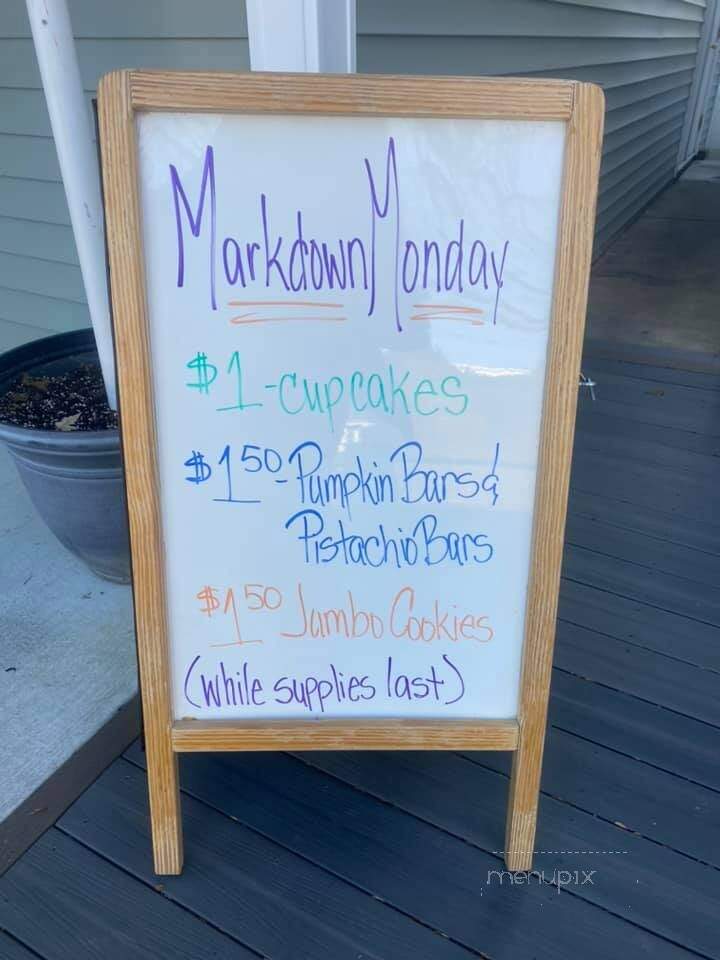 Markdown Monday
$1-cupcakes
$1.50-Pumpkin Bars &
Pistachio Bars
$1.50 Jumbo Cookies
(while supplies last)
menupix